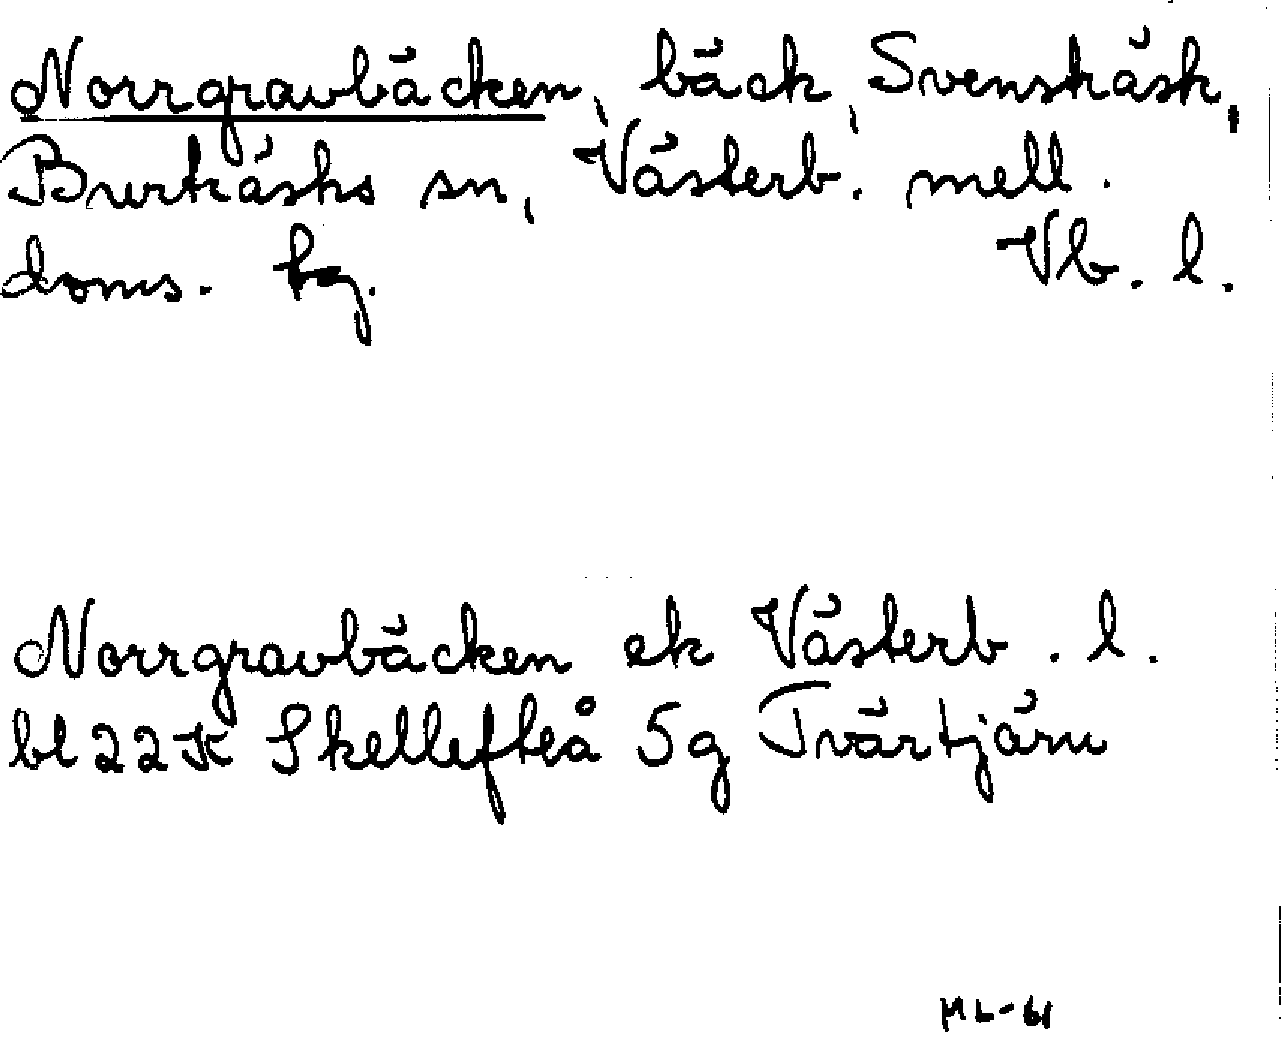 Norrgravbäcken, bäck, Svensträsk,
Burträsks sn, Västerb. mell.
doms. hg. Vb. l.
Norrgravbäcken ek Västerb. l.
bl 22K Skellefteå 5g Tvärtjärn
ML-61